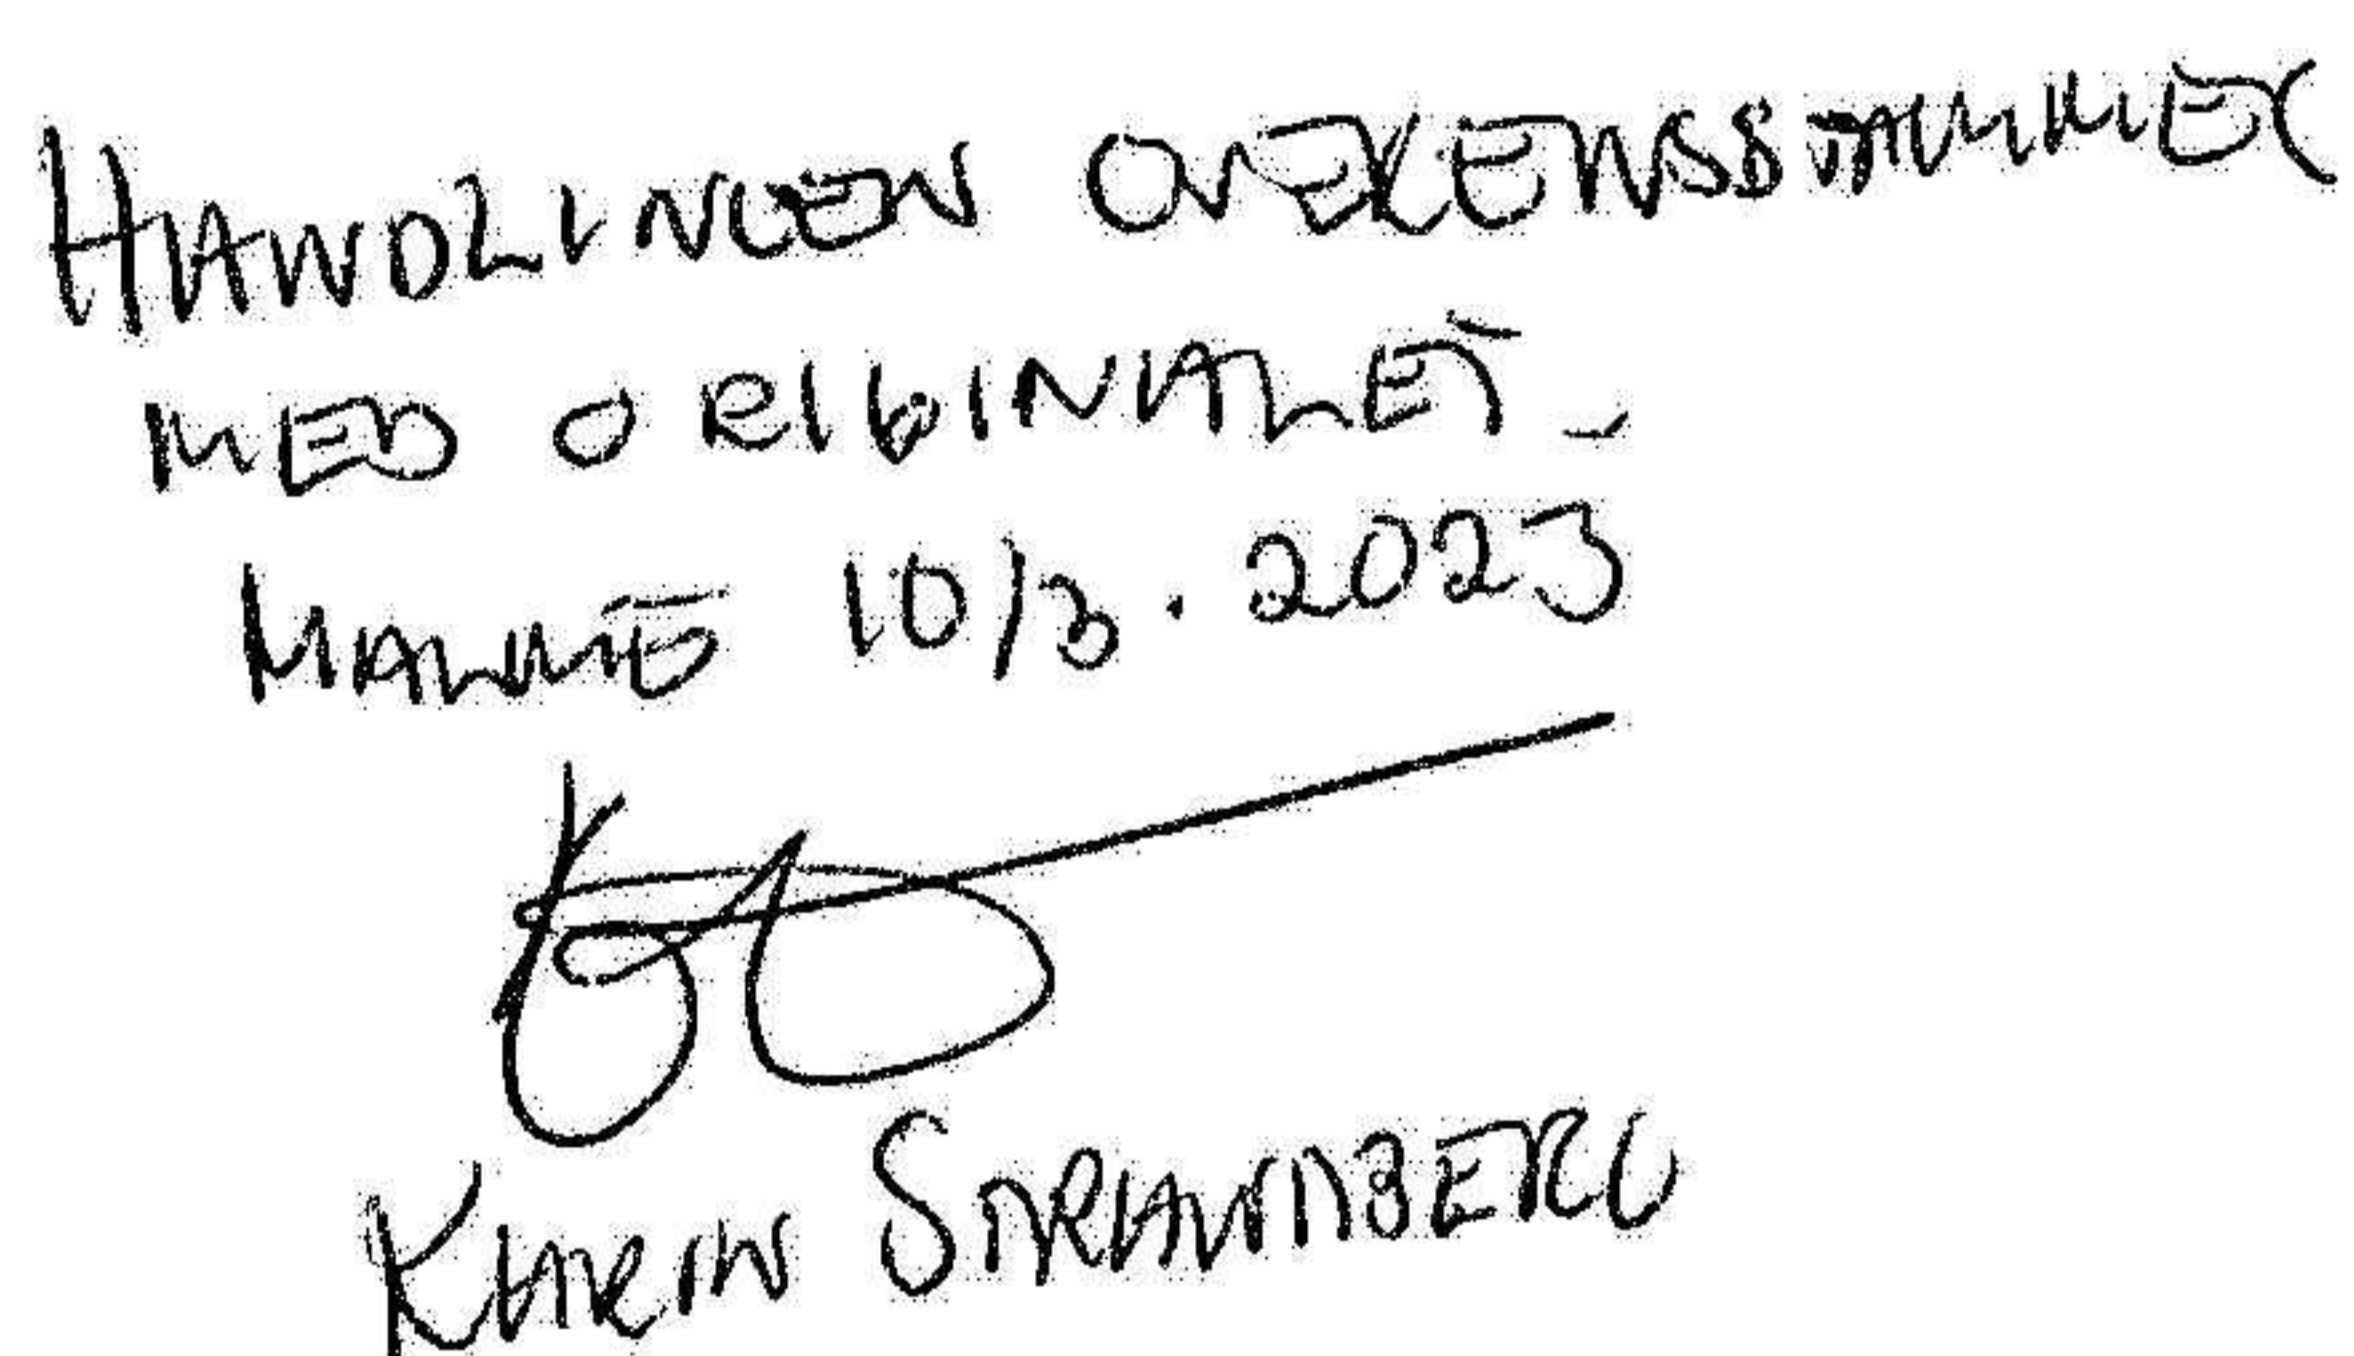 HANDLINGEN ÖVERENSSTÄMMER
MED ORIGINALET.
MALMÖ 10/3.2023
KARIN STRANDBERG